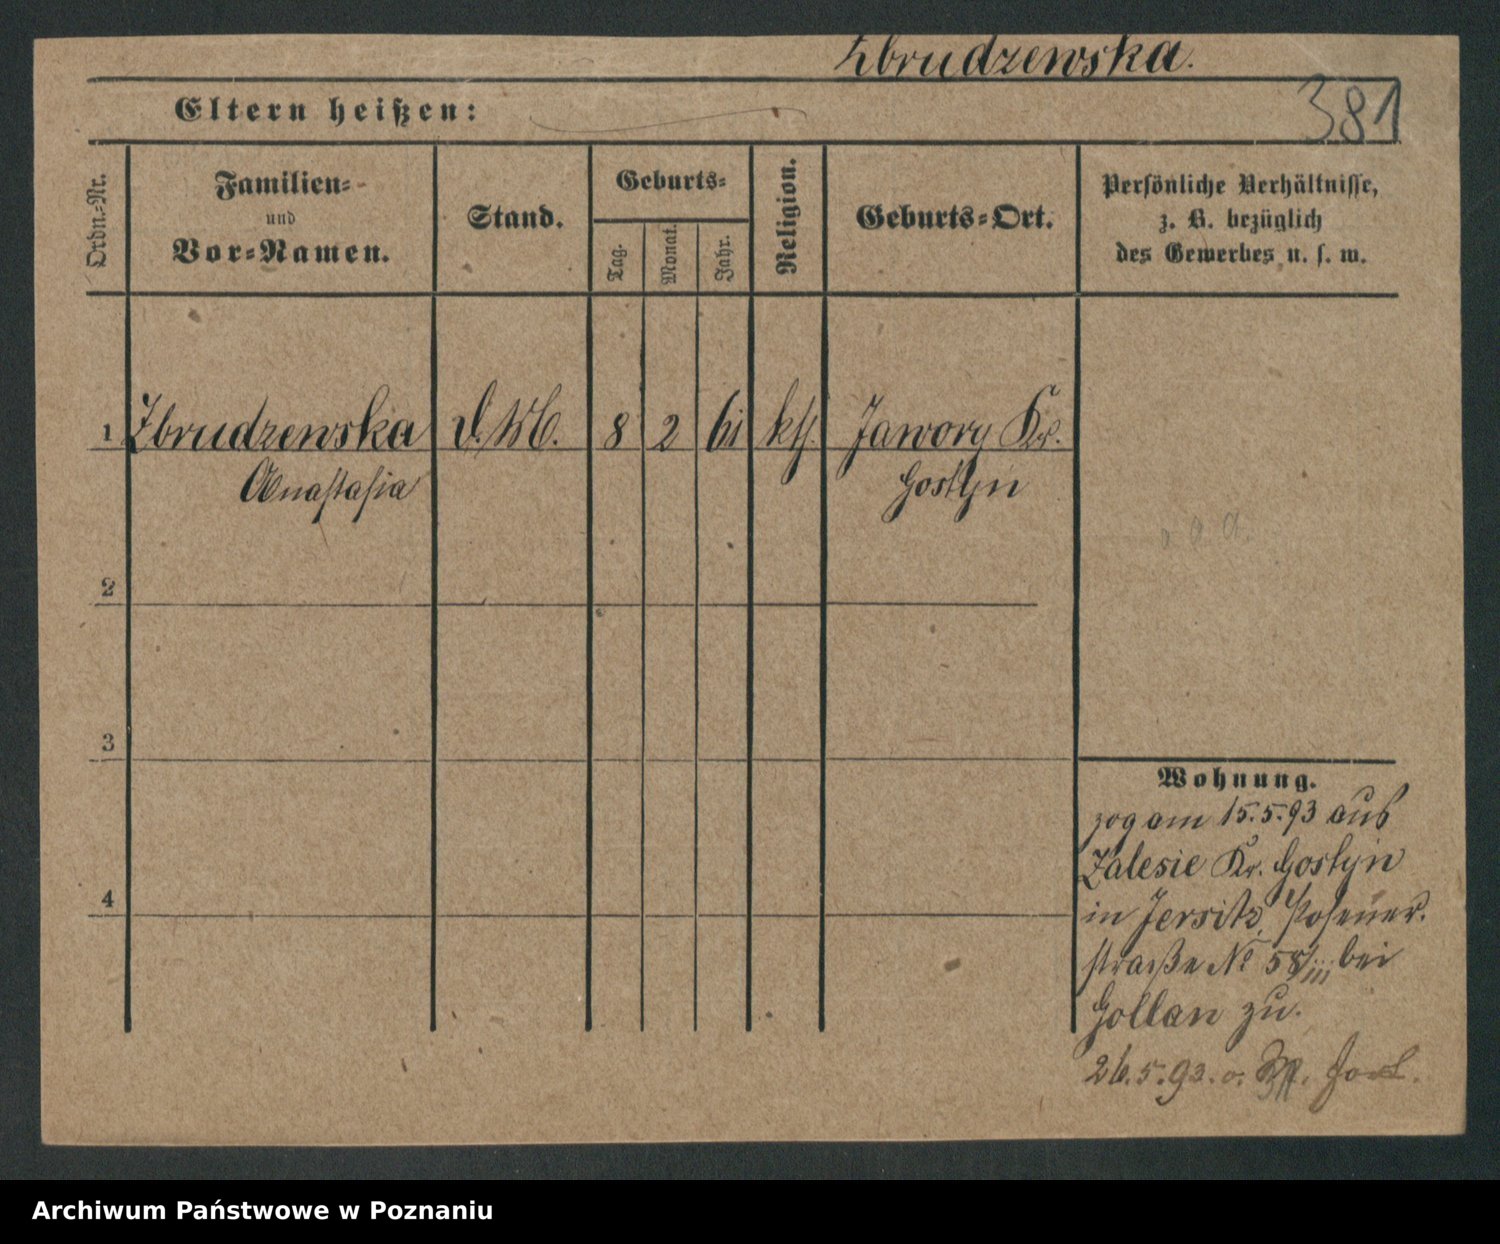 Zbrudzewska.
Eltern heißen:
381
Ordn.-Nr.
Familien-
und
Vor-Namen.
Stand.
Geburts-
Tag.
Monat.
Jahr.
Religion.
Geburts-Ort.
Persönliche Verhältnisse,
z. B. bezüglich
des Gewerbes u. s. w.
1 Zbrudzewska 8 2 61 kth. Jawory Kr.
Anastasia Gostyn
2
3
4
Wohnung.
zog am 15.5.93 aus
Zalesie Kr. Gostyn
in Jersitz, Posener-
straße No 58/III bei
Gollan zu.
26.5.93.
Archiwum Państwowe w Poznaniu